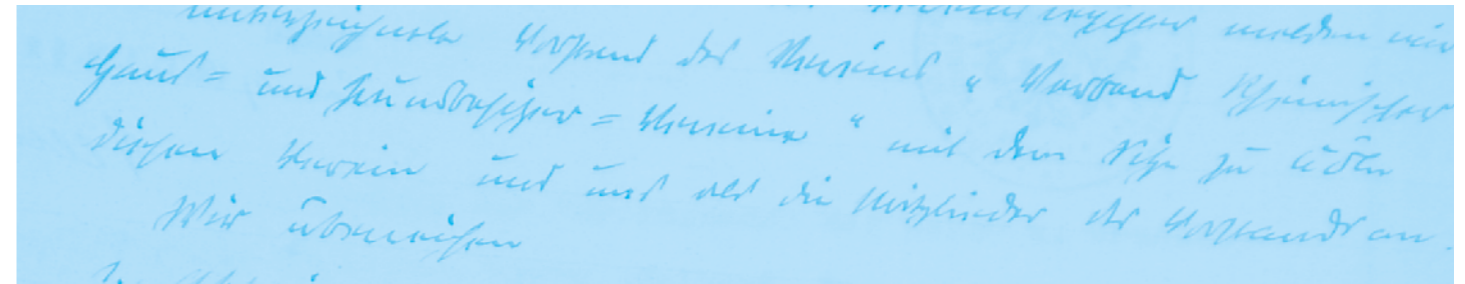 unterzeichnete Vorstand des Vereins „ Verband Rheinischer
Haus= und Grundbesitzer=Vereine “ mit dem Sitze zu Cöln
diesen Verein und uns als die Mitglieder des Vorstandes an.
Wir überreichen